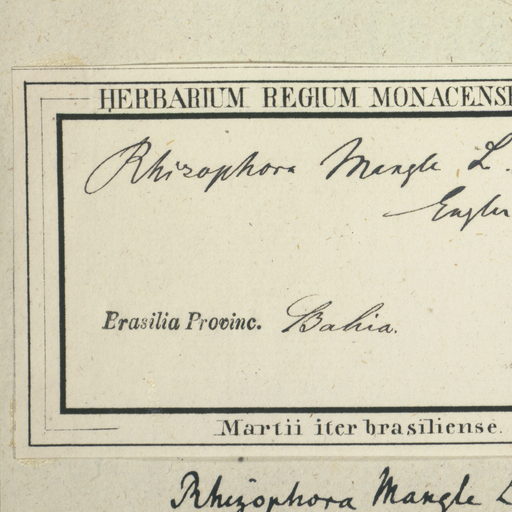 HERBARIUM REGIUM MONACENSE
Rhizophora Mangle L.
Engler
Brasilia Provinc. Bahia.
Martii iter brasiliense.
Rhizophora Mangle L